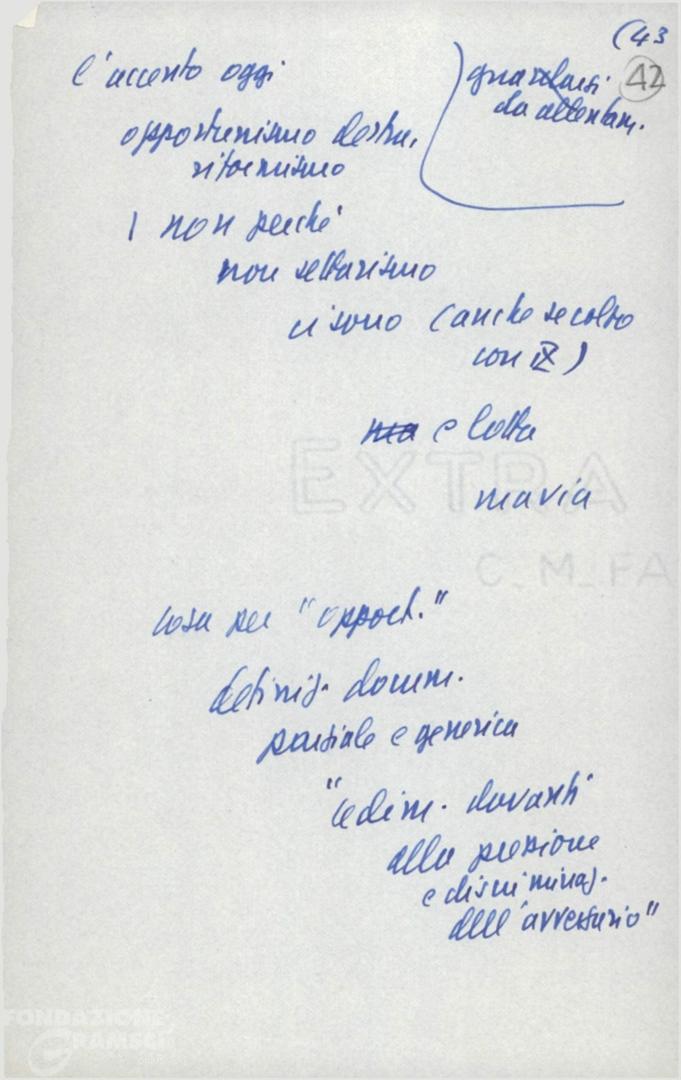 (43
42
l'accento oggi
guardarsi
da attentam.
opportunismo destra,
riformismo
1 non perché
non settarismo
ci sono (anche se colpo
con IX)
ma e lotta
ma via
cosa per "opport."
definiz. docum.
parziale e generica
"cedim. davanti
alla pressione
e discriminaz.
dell'avversario"
EXTRA
C_M_FA
FONDAZIONE
GRAMSCI